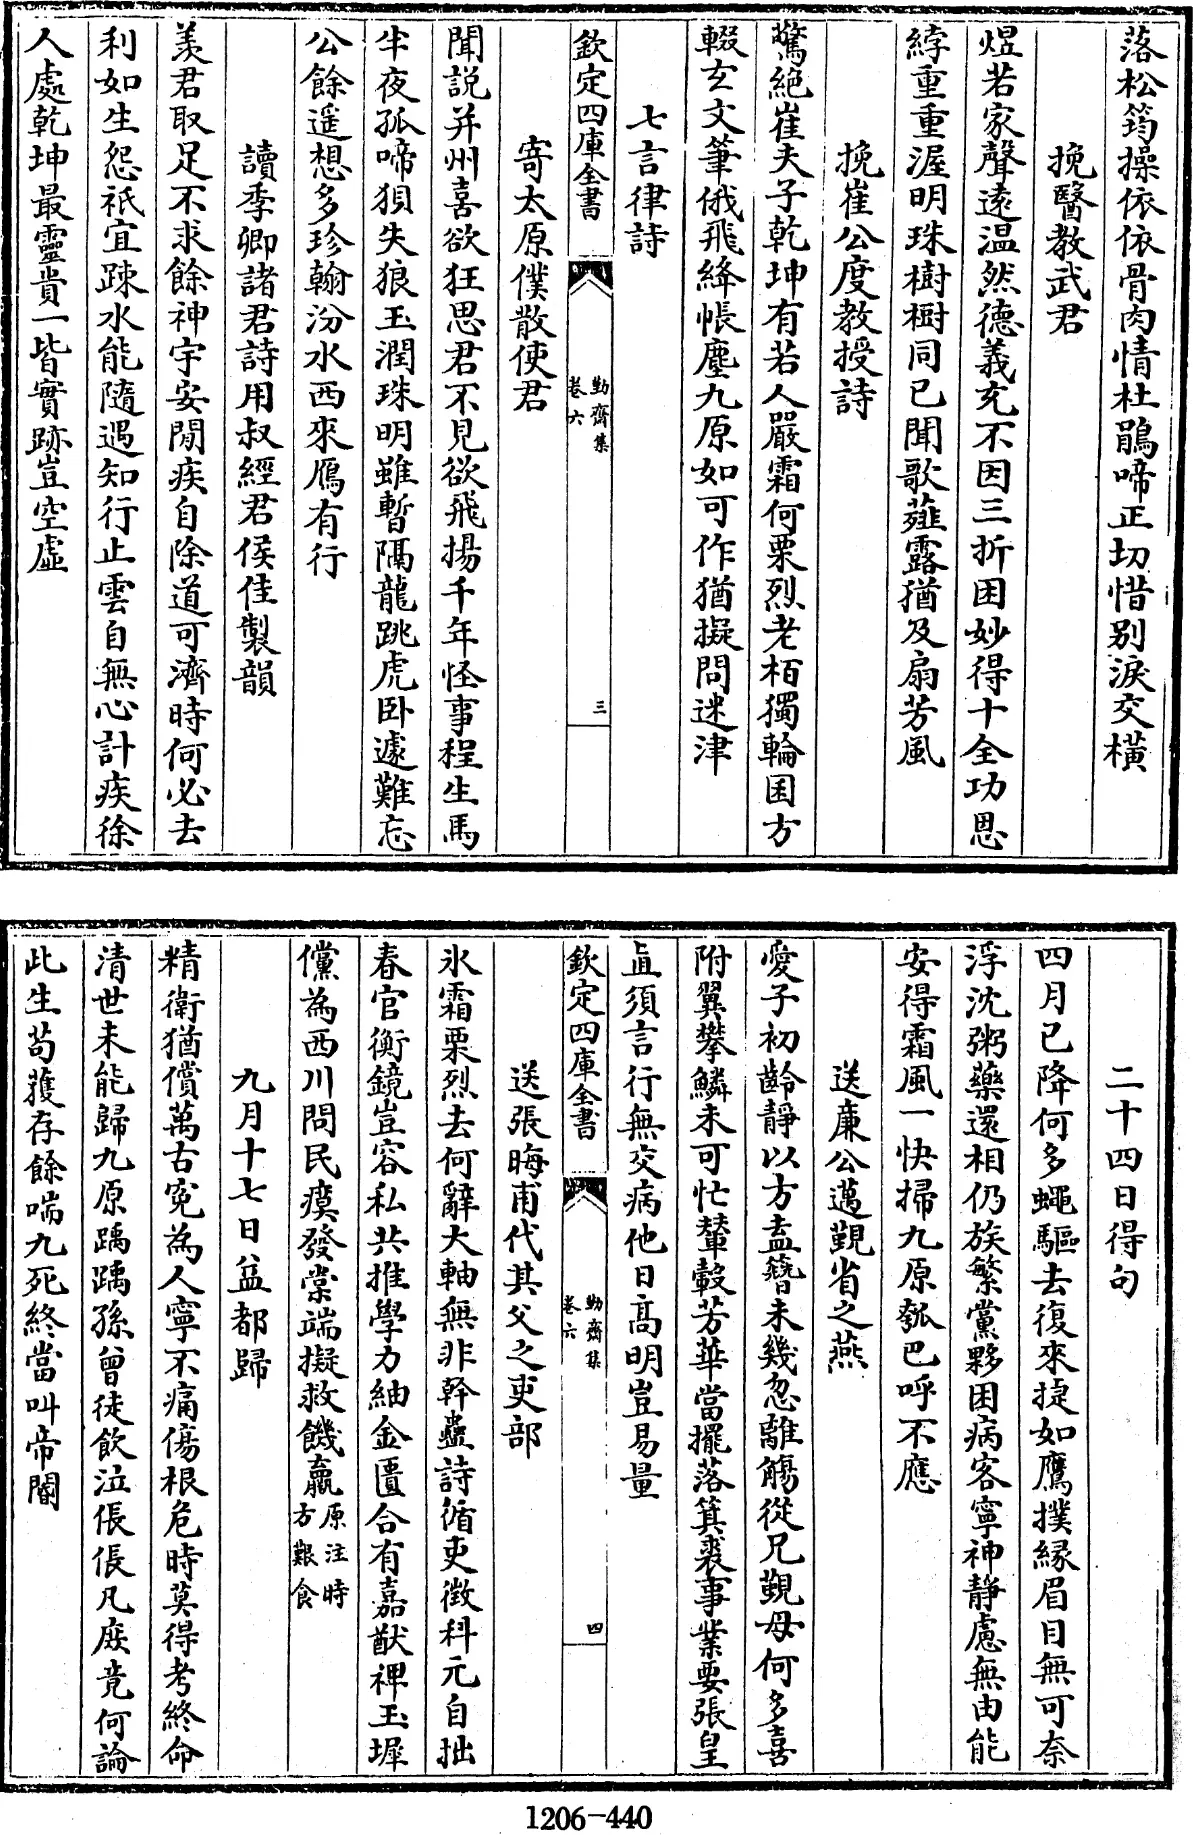 落松筠操依依骨肉情杜鵑啼正切惜别淚交横
挽醫教武君
煜若家聲遠温然德義充不因三折困妙得十全功恩
綍重重渥明珠樹樹同已聞歌薤露猶及扇芳風
挽崔公度教授詩
驚絶崔夫子乾坤有若人嚴霜何栗烈老栢獨輪囷方
輟玄文筆俄飛絳帳塵九原如可作猶擬問迷津
七言律詩
欽定四庫全書
勤齋集
卷六
三
寄太原僕散使君
聞説并州喜欲狂思君不見欲飛揚千年怪事程生馬
半夜孤啼狽失狼玉潤珠明雖暫隔龍跳虎卧遽難忘
公餘遥想多珍翰汾水西來鴈有行
讀季卿諸君詩用叔經君侯佳製韻
羡君取足不求餘神宇安閒疾自除道可濟時何必去
利如生怨祇宜踈水能隨遇知行止雲自無心計疾徐
人處乾坤最靈貴一皆實跡豈空虚
二十四日得句
四月已降何多蠅驅去復來捷如鷹撲緣眉目無可奈
浮沈粥藥還相仍族繁黨夥困病客寧神靜慮無由能
安得霜風一快掃九原瓠巴呼不應
送廉公邁覲省之燕
愛子初齡靜以方盍簪未幾忽離觴從兄覲母何多喜
附翼攀鱗未可忙輦轂芳華當擺落箕裘事業要張皇
直須言行無交病他日高明豈易量
欽定四庫全書
勤齋集
卷六
四
送張晦甫代其父之吏部
氷霜栗烈去何辭大軸無非幹蠱詩循吏徴科元自拙
春官衡鏡豈容私共推學力紬金匱合有嘉猷裨玉墀
儻為西川問民瘼發棠端擬救饑羸原注時方艱食
九月十七日益都歸
精衛猶償萬古寃為人寧不痛傷根危時莫得考終命
清世未能歸九原踽踽孫曾徒飲泣倀倀凡庶竟何論
此生苟獲存餘喘九死終當叫帝閽
1206-440